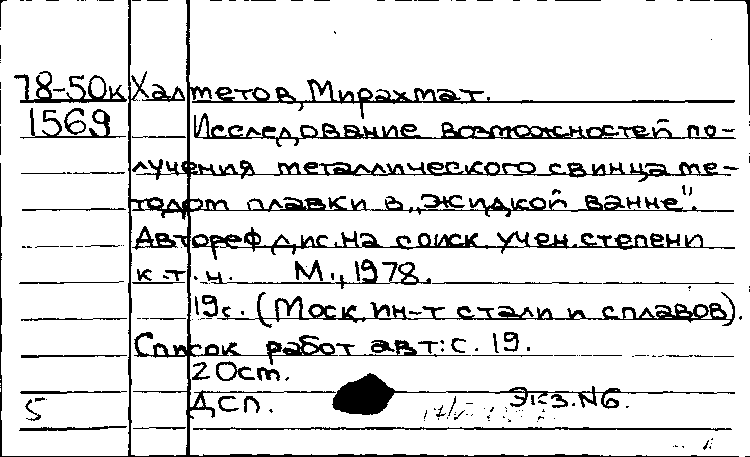 78-50к Халметов, Мирахмат.
1569 Исследование возможностей по-
лучения металлического свинца ме-
тодом плавки в „жидкой ванне".
Автореф дис. на соиск. учен. степени
к.т.н. М., 1978.
19с. (Моск. ин-т стали и сплавов).
Список работ авт: с. 19.
20ст.
5 ДСП. Экз.N6.